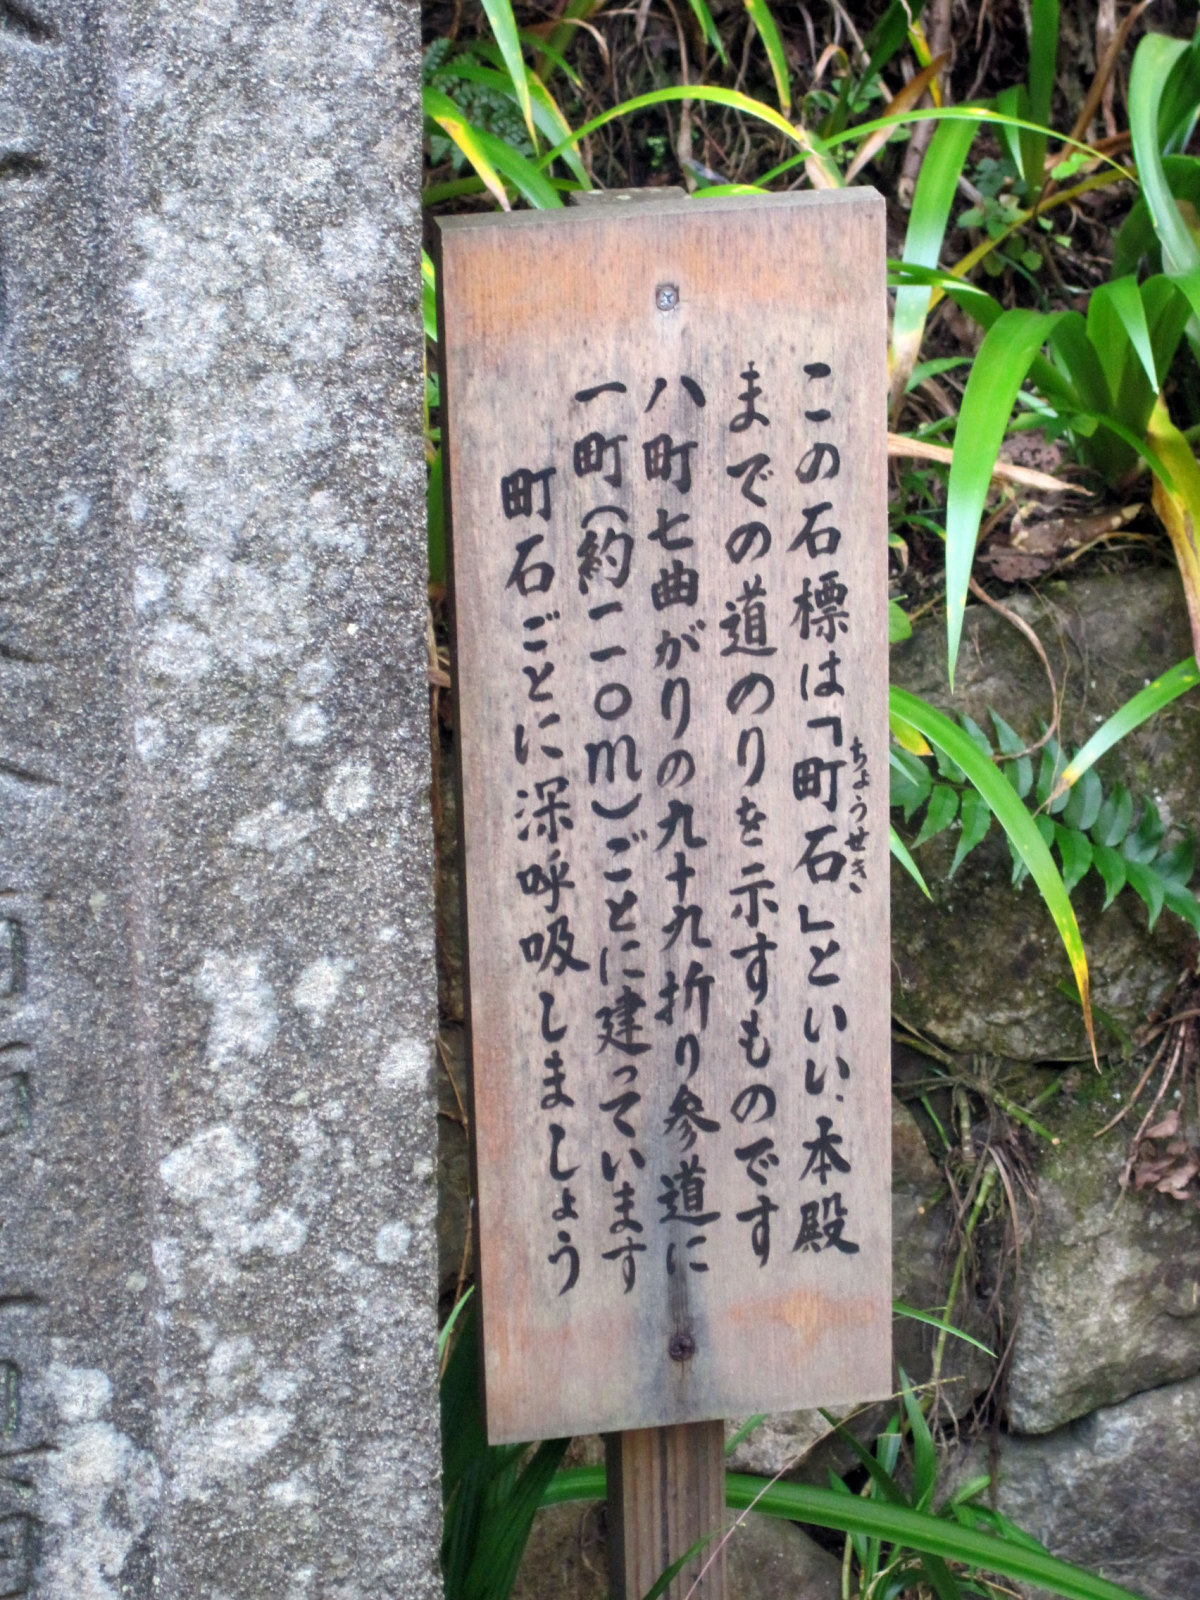 この石標は「町石」といい、本殿
ちょうせき
までの道のりを示すものです
八町七曲がりの九十九折り参道に
一町(約一一〇m)ごとに建っています
町石ごとに深呼吸しましょう